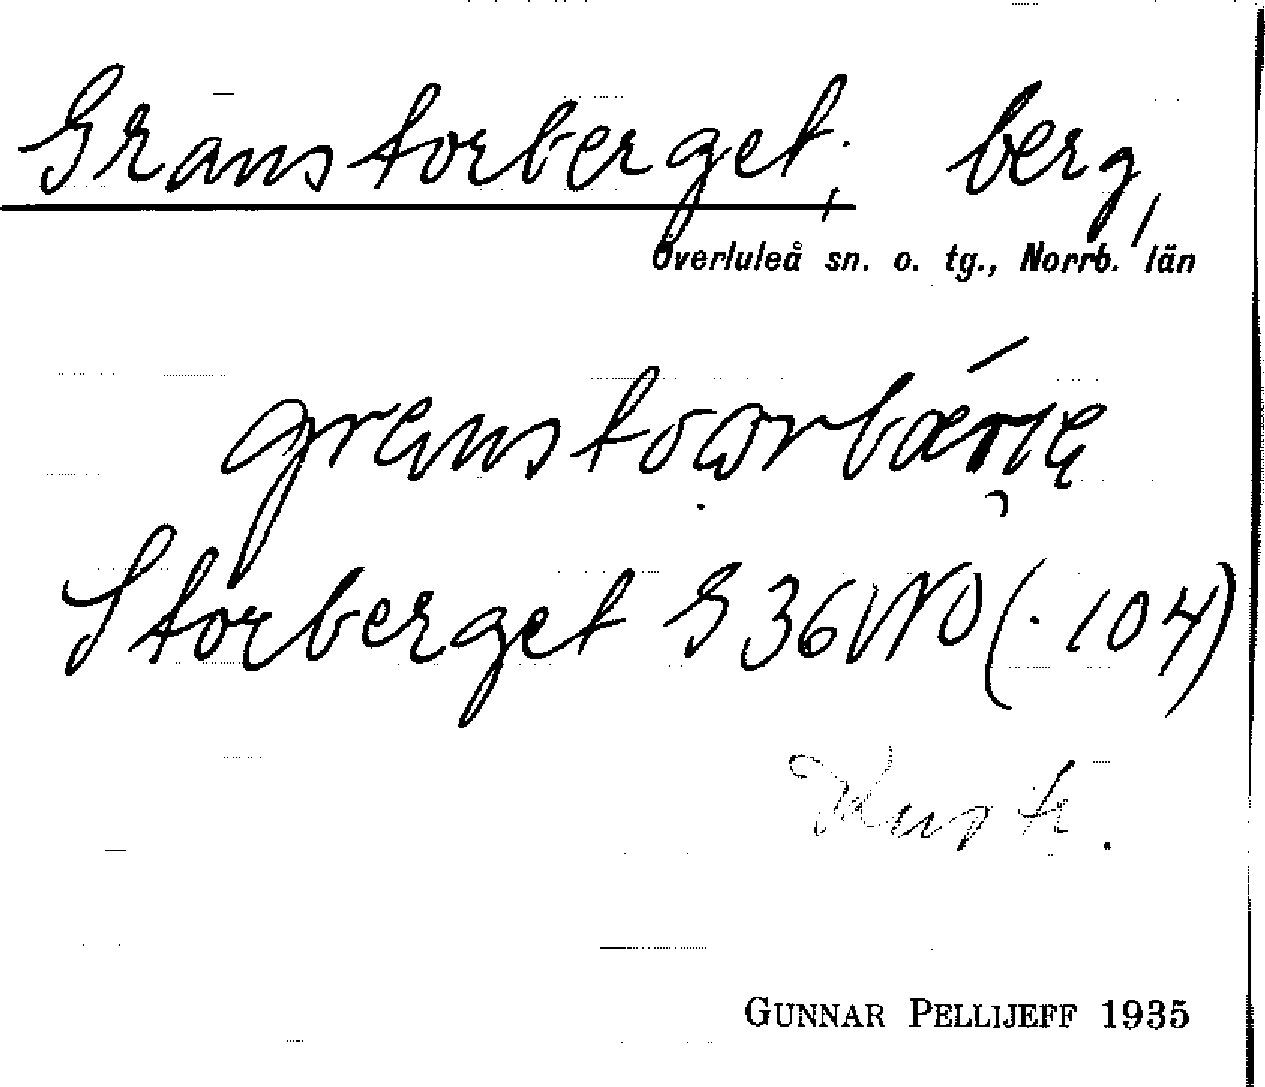 Gränstorberget, berg,
Överluleå sn. o. tg., Norrb. län
Storberget G 36 VNO (. 104)
GUNNAR PELLIJEFF 1935